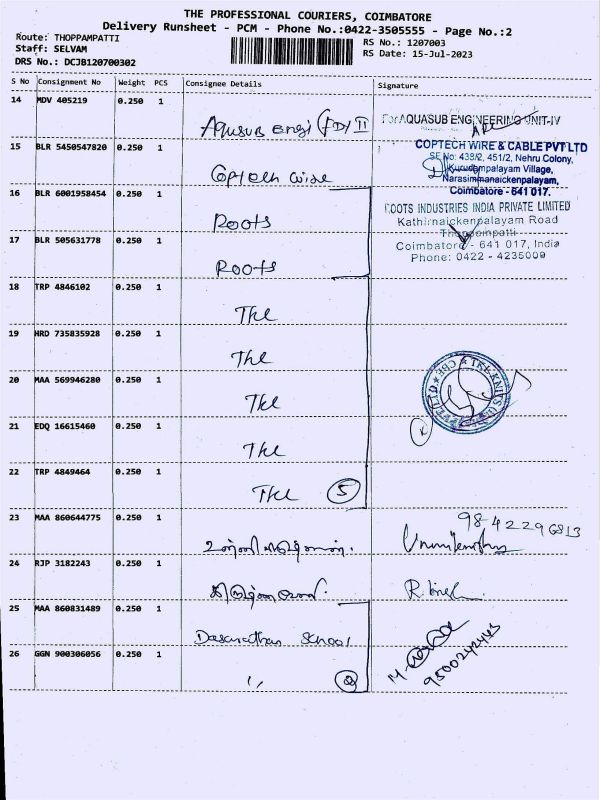 THE PROFESSIONAL COURIERS, COIMBATORE
Delivery Runsheet - PCM - Phone No.:0422-3505555 - Page No.:2
Route: THOPPAMPATTI
Staff: SELVAM
DRS No.: DCJB120700302
RS No.: 1207003
RS Date: 15-Jul-2023
S No Consignment No Weight PCS Consignee Details Signature
14 MDV 405219 0.250 1
Aquasub engi For AQUASUB ENGINEERING UNIT-IV
15 BLR 5450547820 0.250 1
Coptech wire
COPTECH WIRE & CABLE PVT LTD
SF No: 438/2, 451/2, Nehru Colony,
Kurudampalayam Village,
Narasimmanaickenpalayam,
Coimbatore - 641 017.
16 BLR 6001958454 0.250 1
Roots
ROOTS INDUSTRIES INDIA PRIVATE LIMITED
Kathirnaickenpalayam Road
Thoppampatti
Coimbatore - 641 017, India
Phone: 0422 - 4235009
17 BLR 505631778 0.250 1
Roots
18 TRP 4846102 0.250 1
TKL
19 HRD 735835928 0.250 1
TKL
20 MAA 569946280 0.250 1
TKL
21 EDQ 16615460 0.250 1
TKL
22 TRP 4849464 0.250 1
TKL 5
23 MAA 860644775 0.250 1
9842296813
24 RJP 3182243 0.250 1
25 MAA 860831489 0.250 1
Dasarathan School
26 GGN 900306056 0.250 1
" 2
9500242445